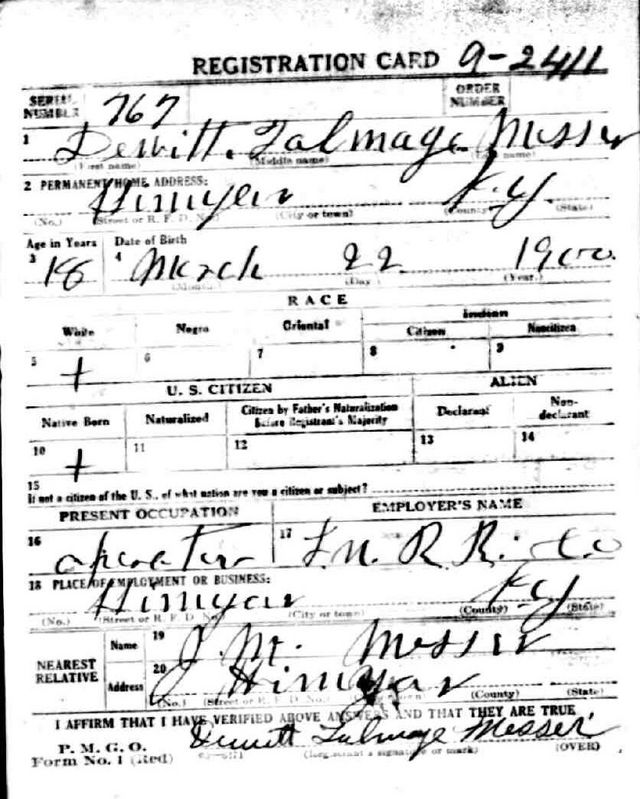 REGISTRATION CARD 9-2411
SERIAL NUMBER 767 ORDER NUMBER
1 Dewitt Talmage Messer
(First name) (Middle name) (Last name)
2 PERMANENT HOME ADDRESS:
Himyar Ky.
(No.) (Street or R. F. D. No.) (City or town) (County) (State)
Age in Years Date of Birth
3 18 4 March 22 1900
(Month) (Day) (Year.)
RACE
White Negro Oriental Indian
Citizen Noncitizen
5 + 6 7 8 9
U. S. CITIZEN ALIEN
Native Born Naturalized Citizen by Father's Naturalization Before Registrant's Majority Declarant Non-declarant
10 + 11 12 13 14
15
If not a citizen of the U. S., of what nation are you a citizen or subject?
PRESENT OCCUPATION EMPLOYER'S NAME
16 operator 17 L. N. R. R. Co
18 PLACE OF EMPLOYMENT OR BUSINESS:
Himyar Ky
(No.) (Street or R. F. D. No.) (City or town) (County) (State)
NEAREST RELATIVE Name 19 J. M. Messer
Address 20 Himyar
(No.) (Street or R. F. D. No.) (City or town) (County) (State)
I AFFIRM THAT I HAVE VERIFIED ABOVE ANSWERS AND THAT THEY ARE TRUE
P. M. G. O.
Form No. 1 (Red) Dewitt Talmage Messer
(Registrant's signature or mark) (OVER)